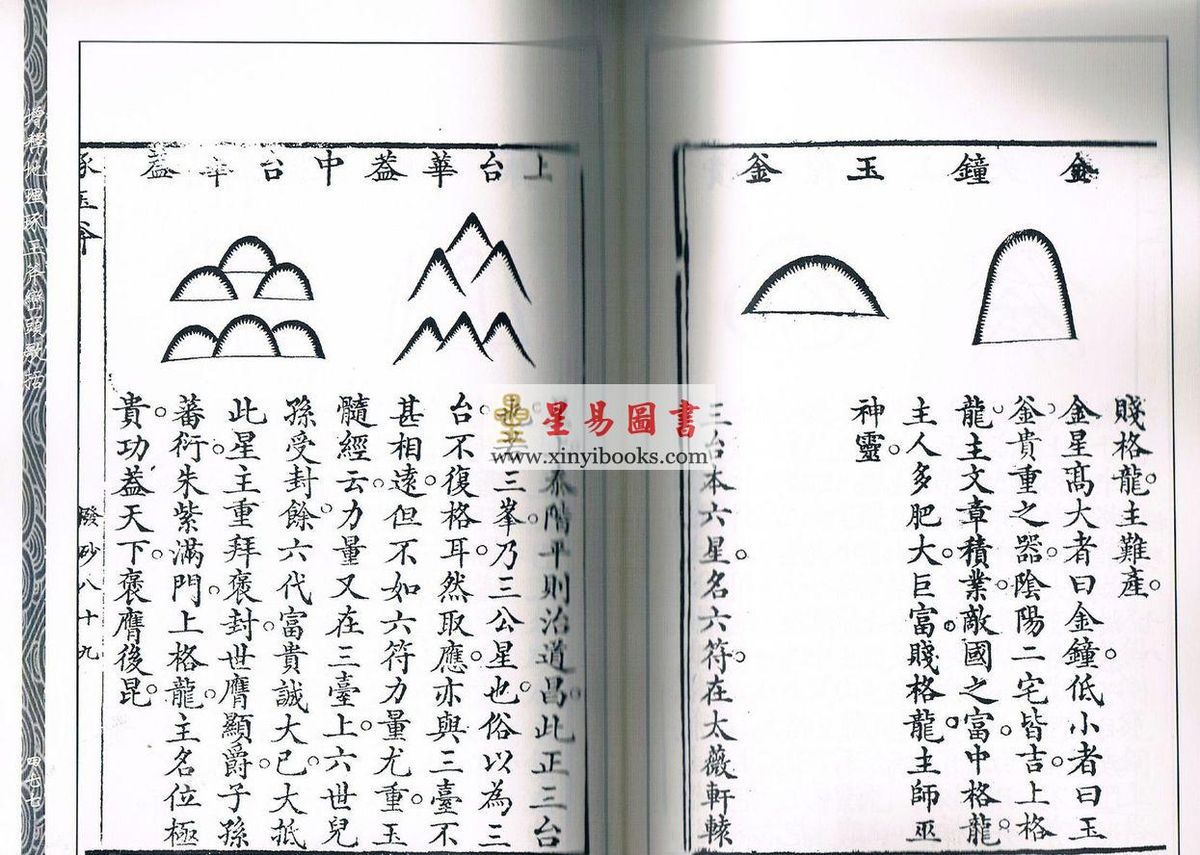 金鐘 玉釜
賤格龍。主難產。
金星高大者曰金鐘。低小者曰玉
釜。貴重之器。陰陽二宅皆吉。上格
龍。主文章積業敵國之富。中格龍。
主人多肥大。巨富。賤格龍。主師巫
神靈。
三台本六星。名六符。在太薇軒轅
上台華葢 中台華葢
泰階平。則治道昌。此正三台
三峯。乃三公星也。俗以為三
台不復格耳。然取應。亦與三臺不
甚相遠。但不如六符力量尤重。玉
髓經云。力量又在三臺上。六世兒
孫受封餘。六代富貴誠大已。大抵
此星主重拜褒封。世膺顯爵。子孫
蕃衍。朱紫滿門。上格龍。主名位極
貴。功葢天下。褒膺後昆。
琢玉斧
撥砂八十九
增釋地理琢玉斧巒頭歌括
四七七
星易圖書
www.xinyibooks.com